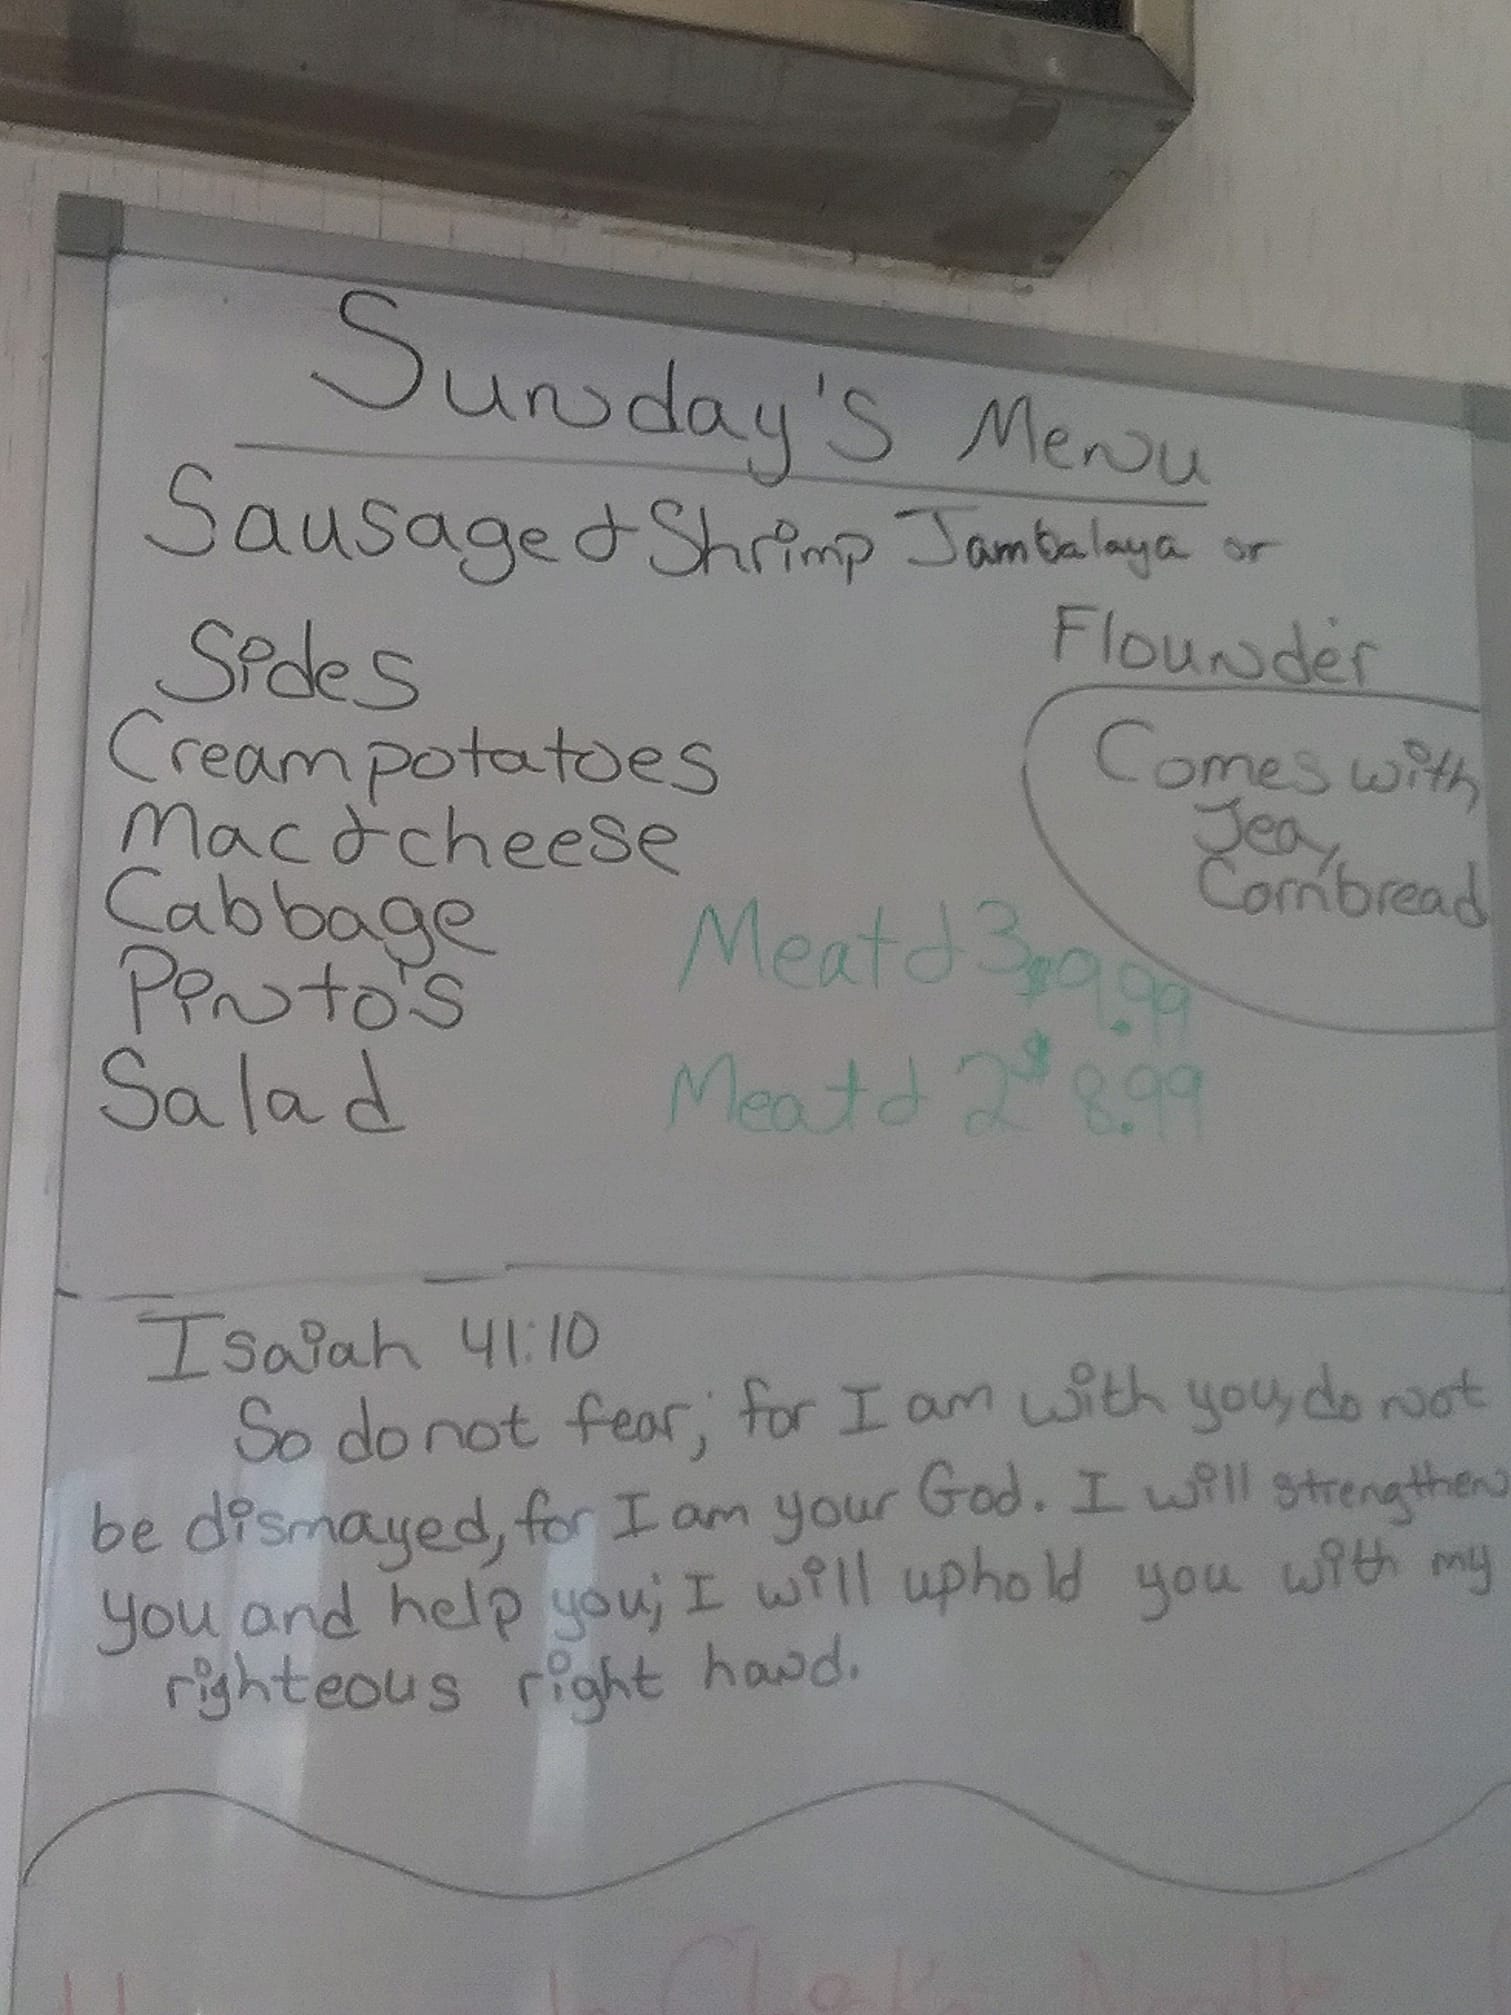 Sunday's Menu
Sausage & Shrimp Jambalaya or
Flounder
Sides
Cream potatoes
Mac & cheese
Cabbage
Pinto's
Salad
Comes with
Tea,
Cornbread
Meat & 3 $9.99
Meat & 2 $8.99
Isaiah 41:10
So do not fear, for I am with you, do not
be dismayed, for I am your God. I will strengthen
you and help you; I will uphold you with my
righteous right hand.